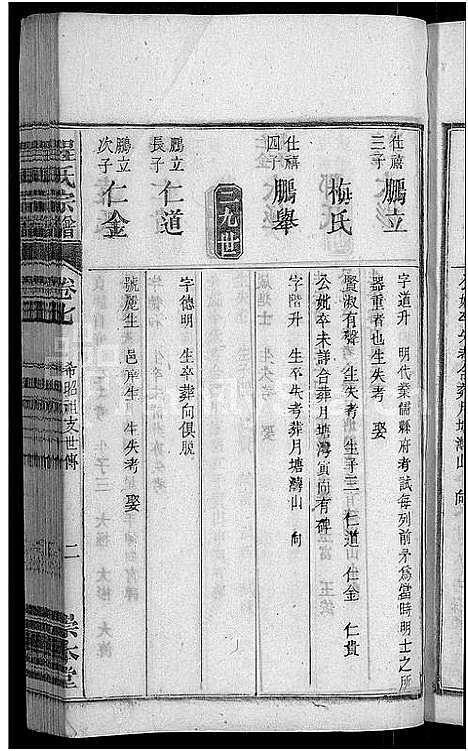 仕禧三子 鵬立
字道升 明代業儒縣府考試每列前矛為當時明士之所
器重者也生失考 娶
梅氏
賢淑有聲 生失考 生子三 仁道 仁金 仁貴
公妣卒未詳合葬月塘灣寅向有碑
仕禧四子 鵬舉
字階升 生卒失考葬月塘灣山 向
三九世
鵬立長子 仁道
字德明 生卒葬向俱脫
鵬立次子 仁金
號麗生 邑庠生 生失考 娶
程氏宗譜
卷七 希昭祖支世傳 二
崇本堂